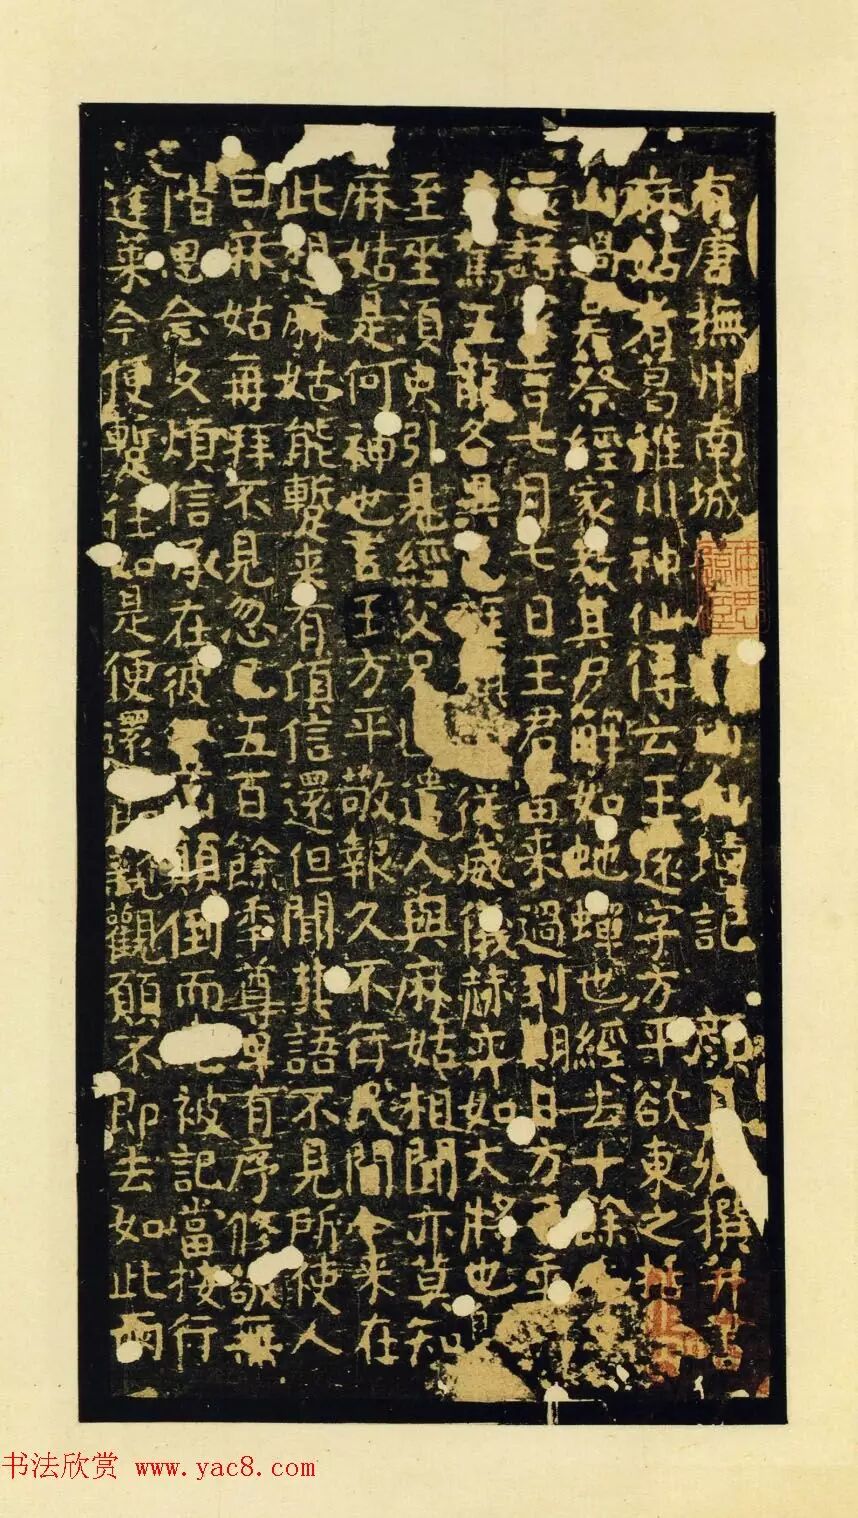 有唐撫州南城山仙壇記 顏撰并書
麻姑者葛稚川神仙傳云王遠字方平欲東之括
山過吴蔡經家教其尸解如虵蟬也經去十餘
還語家言七月七日王君當来過到期日方平
馬五龍各異色從威儀赫弈如大將也
至坐須臾引見經父兄遣人與麻姑相聞亦莫知
麻姑是何神也言王方平敬報久不行民間今来在
此想麻姑能暫来有頃信還但聞其語不見所使人
曰麻姑再拜不見忽已五百餘年尊卑有序修敬無
階思念久煩信承在彼顛倒而被記當按行
蓬萊今便暫往如是便還親觀願不即去如此兩
书法欣赏 www.yac8.com